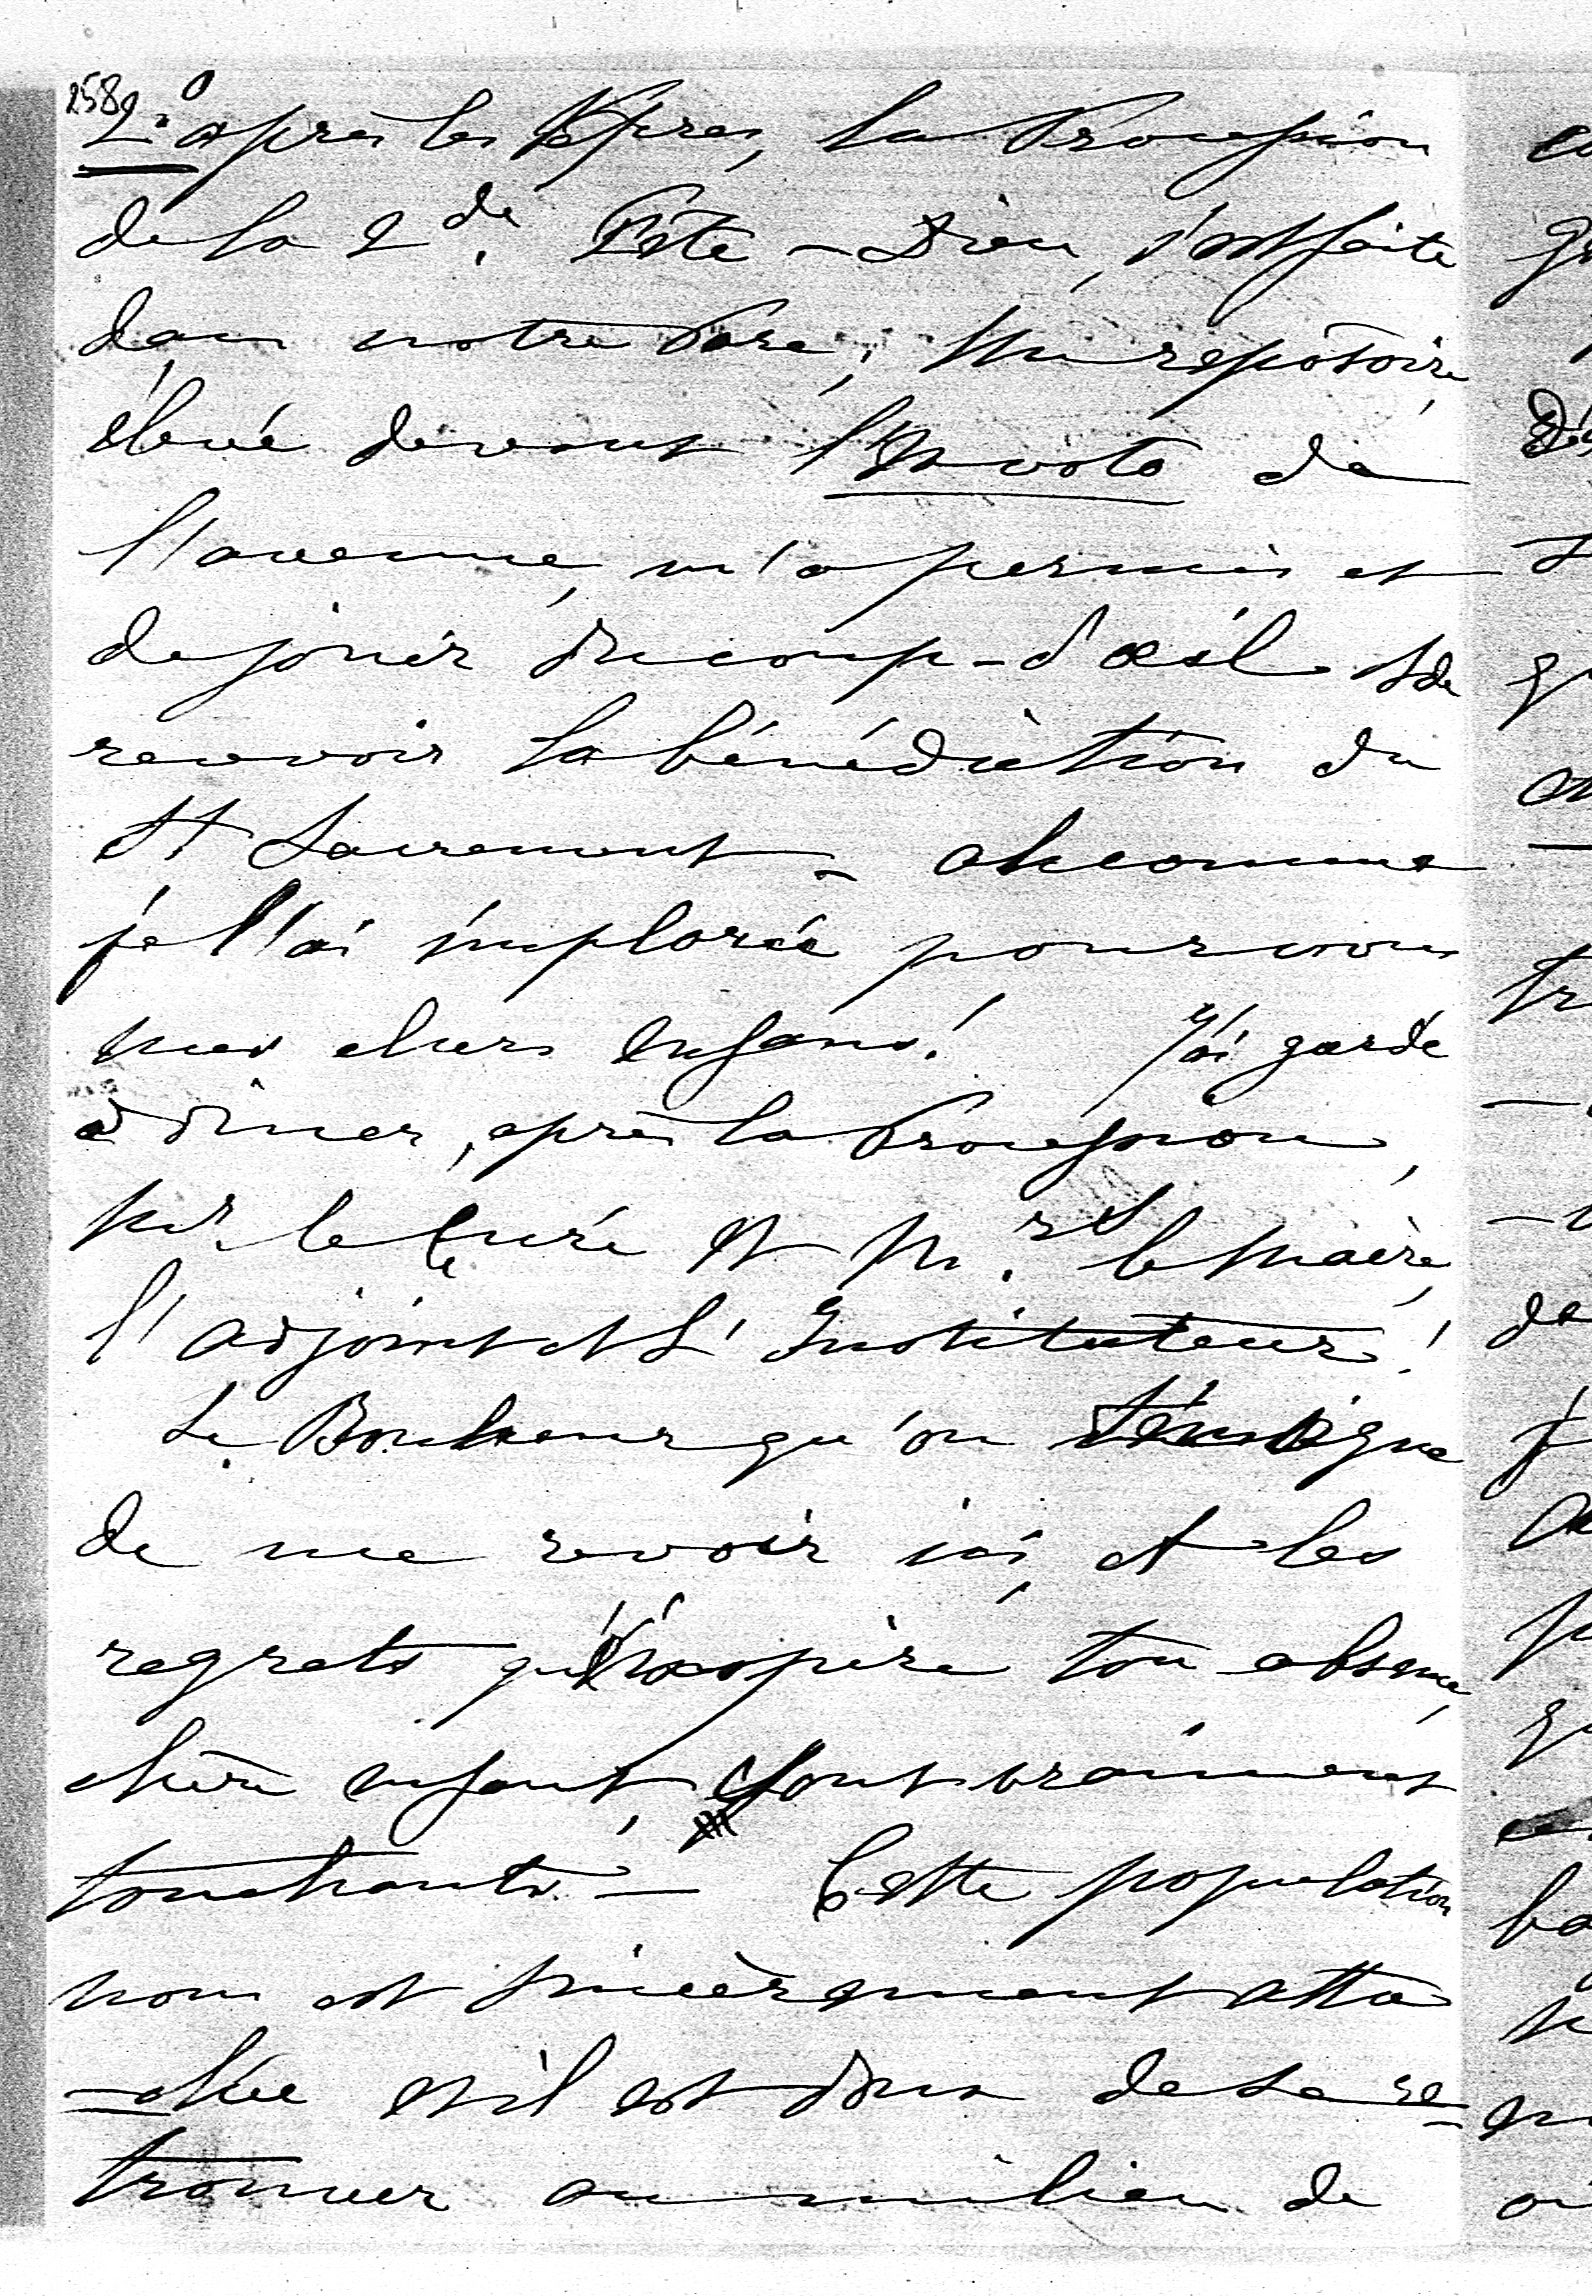 258
2.° après les Vêpres, la Procession
de la 2de. Fête-Dieu, s'est faite
dans notre Parc; Un reposoire,
élevé devant l'Ex voto de
l'avenue, m'a permis et
de jouir du coup-d'œil et de
recevoir la bénédiction du
St Sacrement - ah comme
je l'ai implorée pour vous
mes chers enfans! J'ai gardé
à dîner, après la Procession,
Mr. le Curé et Mr. le Maire,
l'adjoint et l'Instituteur!
Le Bonheur qu'on témoigne
de me revoir ici, et les
regrets qu'inspire ton absence,
chère enfant, sont vraiment
touchants. - Cette population
nous est sincèrement atta
-chée et il est doux de se re-
trouver au milieu de